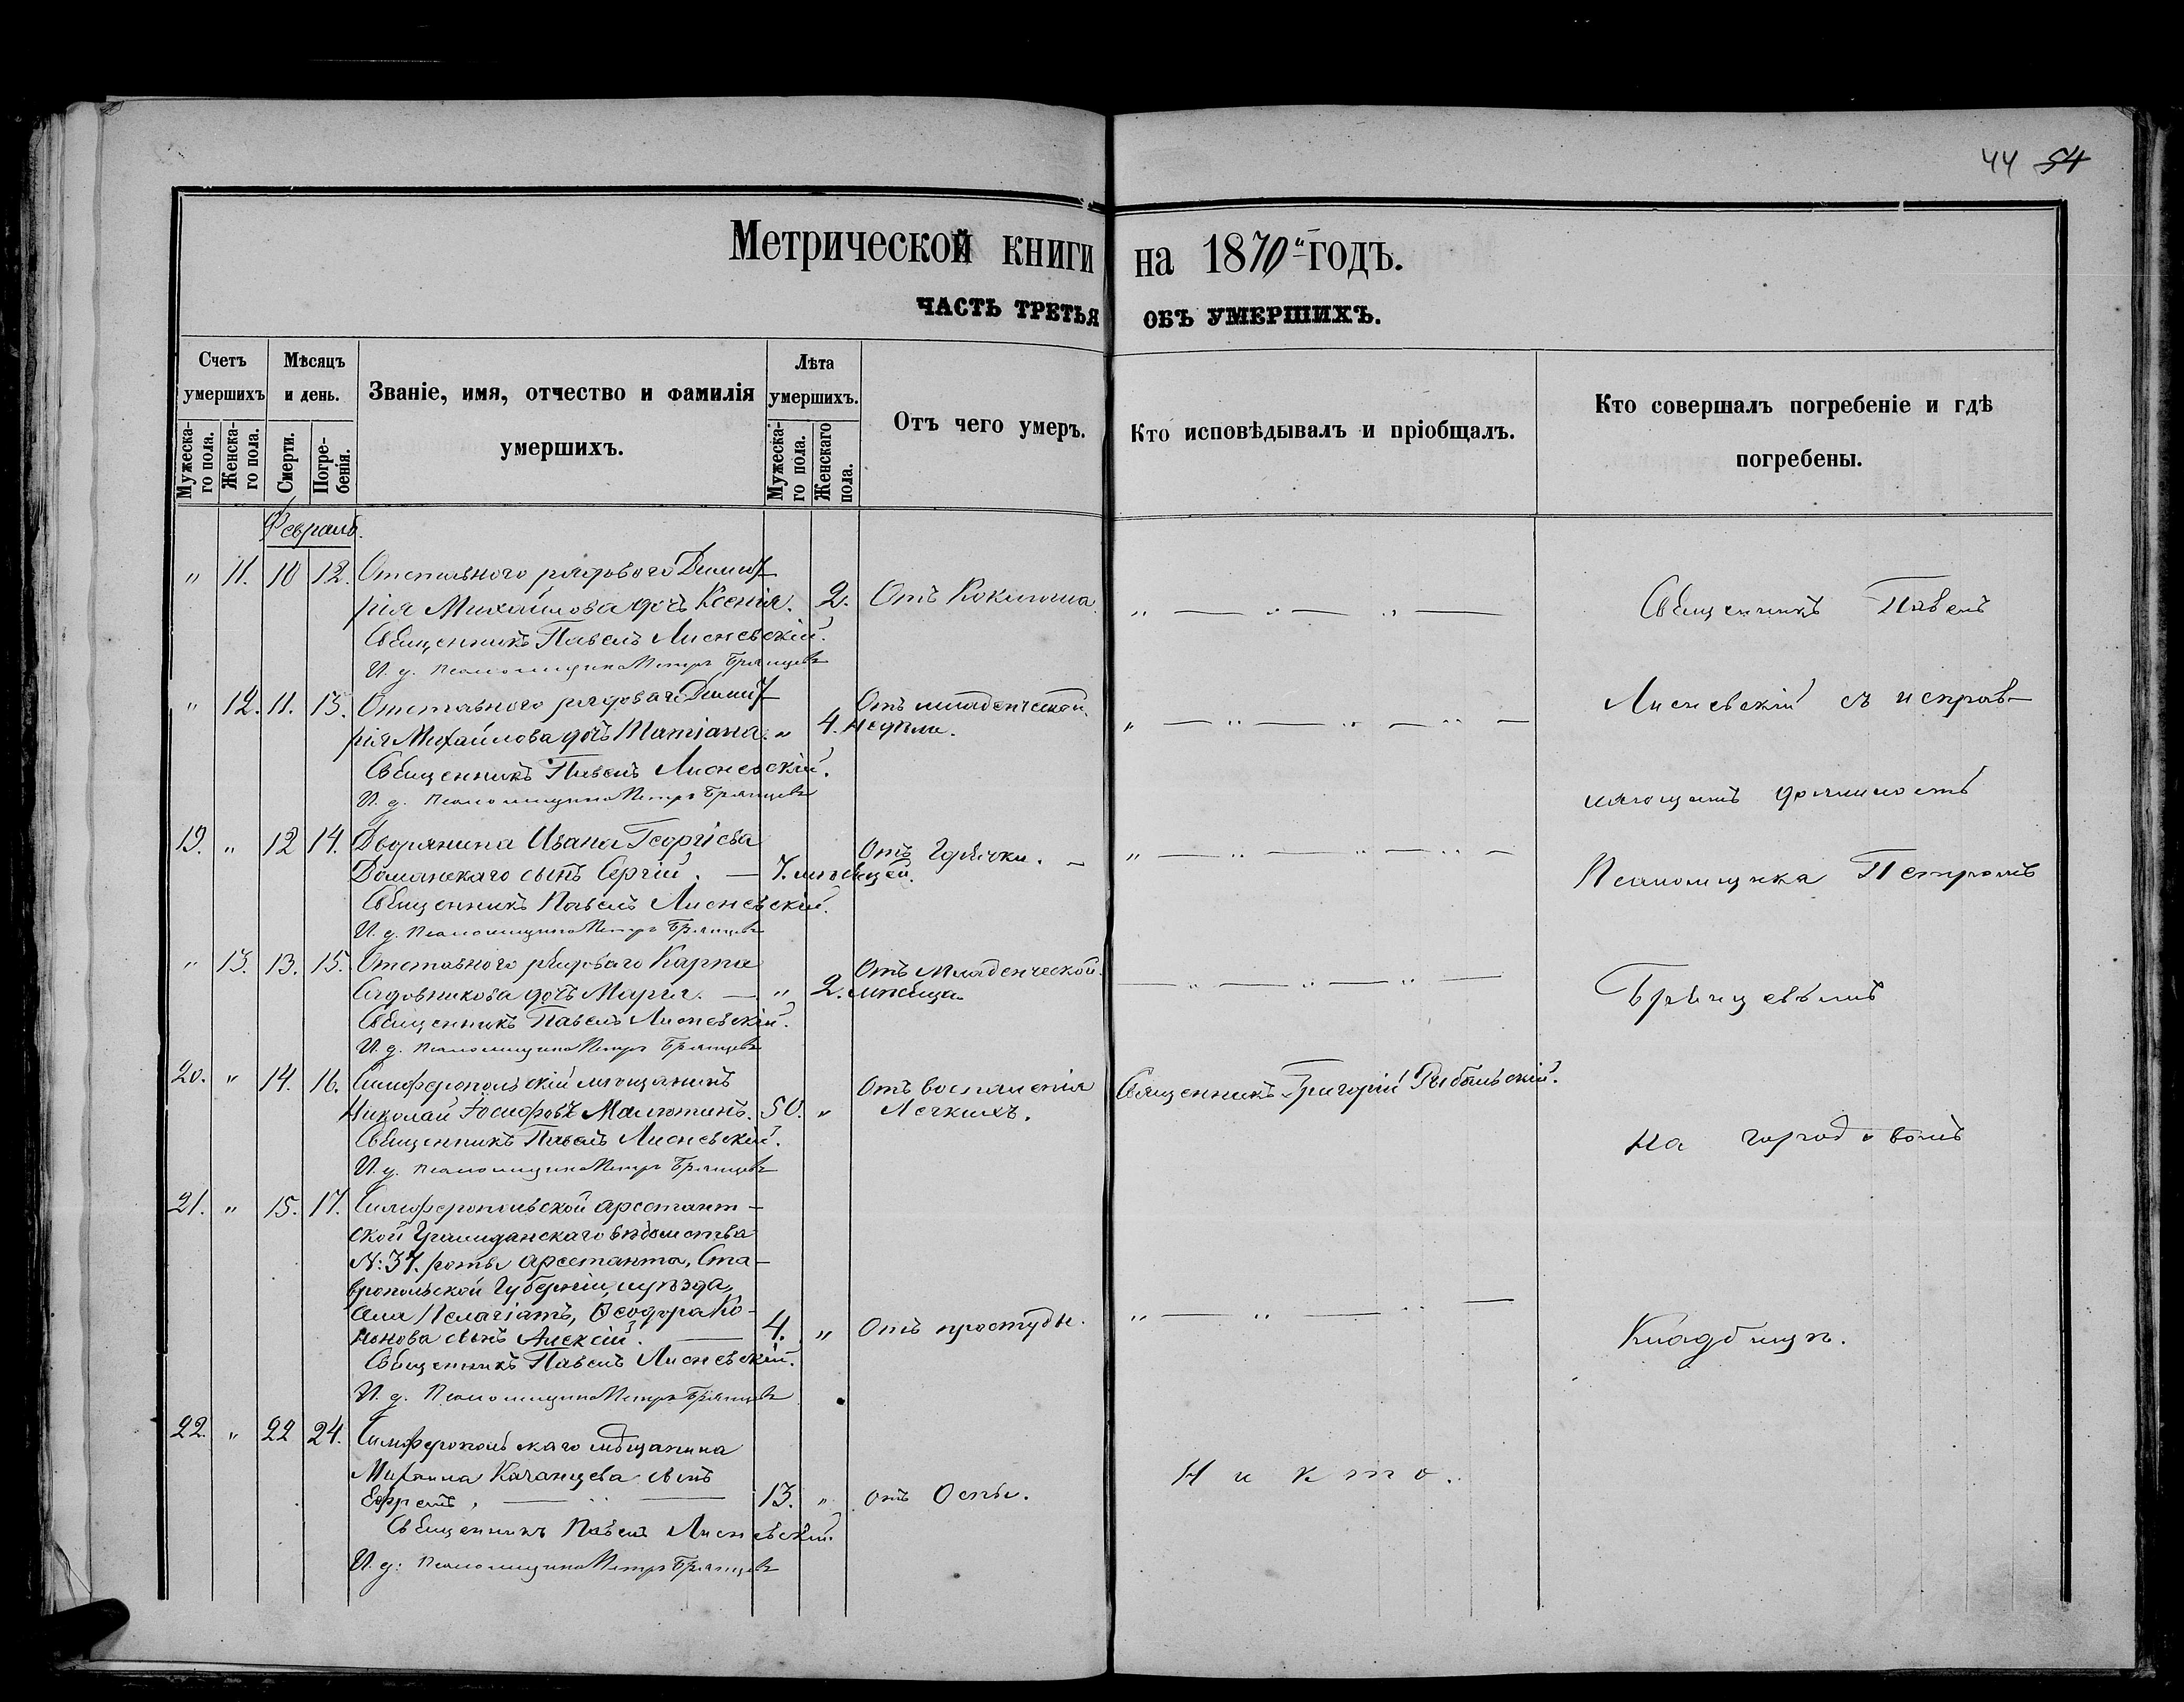 44 54
Метрической книги на 1870й годъ.
ЧАСТЬ ТРЕТЬЯ ОБЪ УМЕРШИХЪ.
Счетъ умершихъ
Мѣсяцъ и день.
Званіе, имя, отчество и фамилія умершихъ.
Лѣта умершихъ.
Отъ чего умеръ.
Кто исповѣдывалъ и пріобщалъ.
Кто совершалъ погребеніе и гдѣ погребены.
Мужеска-го пола.
Женска-го пола.
Смерти.
Погре-бенія.
Мужеска-го пола.
Женскаго пола.
Февраль.
" 11. 10 12. Отставного рядового Димит-
рія Михайлова дочь Ксенія. 2. Отъ Коклюша. " — " — " —
Священникъ Павелъ Лисневскій.
И. д. Псаломщика Петръ Брянцевъ
" 12. 11. 13. Отставного рядоваго Димит- Отъ младенческой.
рія Михайлова дочь Татіана. " 4. недѣли. " — " — " — " —
Священникъ Павелъ Лисневскій.
И. д. Псаломщика Петръ Брянцевъ
19. " 12 14. Дворянина Ивана Георгіева Отъ Горячки. — " — " — " — " —
Доманскаго сынъ Сергій. — 7. мѣсяцей.
Священникъ Павелъ Лисневскій.
И. д. Псаломщика Петръ Брянцевъ
" 13. 13. 15. Отставного рядоваго Карпа Отъ Младенческой.
Садовникова дочь Марія. — " 2. мѣсяца. — " — " — " —
Священникъ Павелъ Лисневскій.
И. д. Псаломщика Петръ Брянцевъ
20. " 14. 16. Симферопольскій мѣщанинъ Отъ воспаленія Священникъ Григорій Рыбальскій.
Николай Іосифовъ Малютинъ. 50. " Легкихъ.
Священникъ Павелъ Лисневскій.
И. д. Псаломщика Петръ Брянцевъ
21. " 15. 17. Симферопольской арестант-
ской Гражданскаго вѣдомства
№: 37. роты арестанта, Ста-
вропольской Губерніи, уѣзда,
села Феодора Ко-
нонова сынъ Алексій. — 4. " Отъ простуды. " — " — " —
Священникъ Павелъ Лисневскій.
И. д. Псаломщика Петръ Брянцевъ
22. " 22 24. Симферопольскаго мѣщанина
Михаила Качанцева сынъ
Ефремъ. — " — 13. " отъ Оспы. Никто.
Священникъ Павелъ Лисневскій.
И. д. Псаломщика Петръ Брянцевъ
Священникъ Павелъ
Лисневскій съ исправ-
ляющимъ должность
Псаломщика Петромъ
Брянцевымъ
на городовомъ
Кладбищѣ.